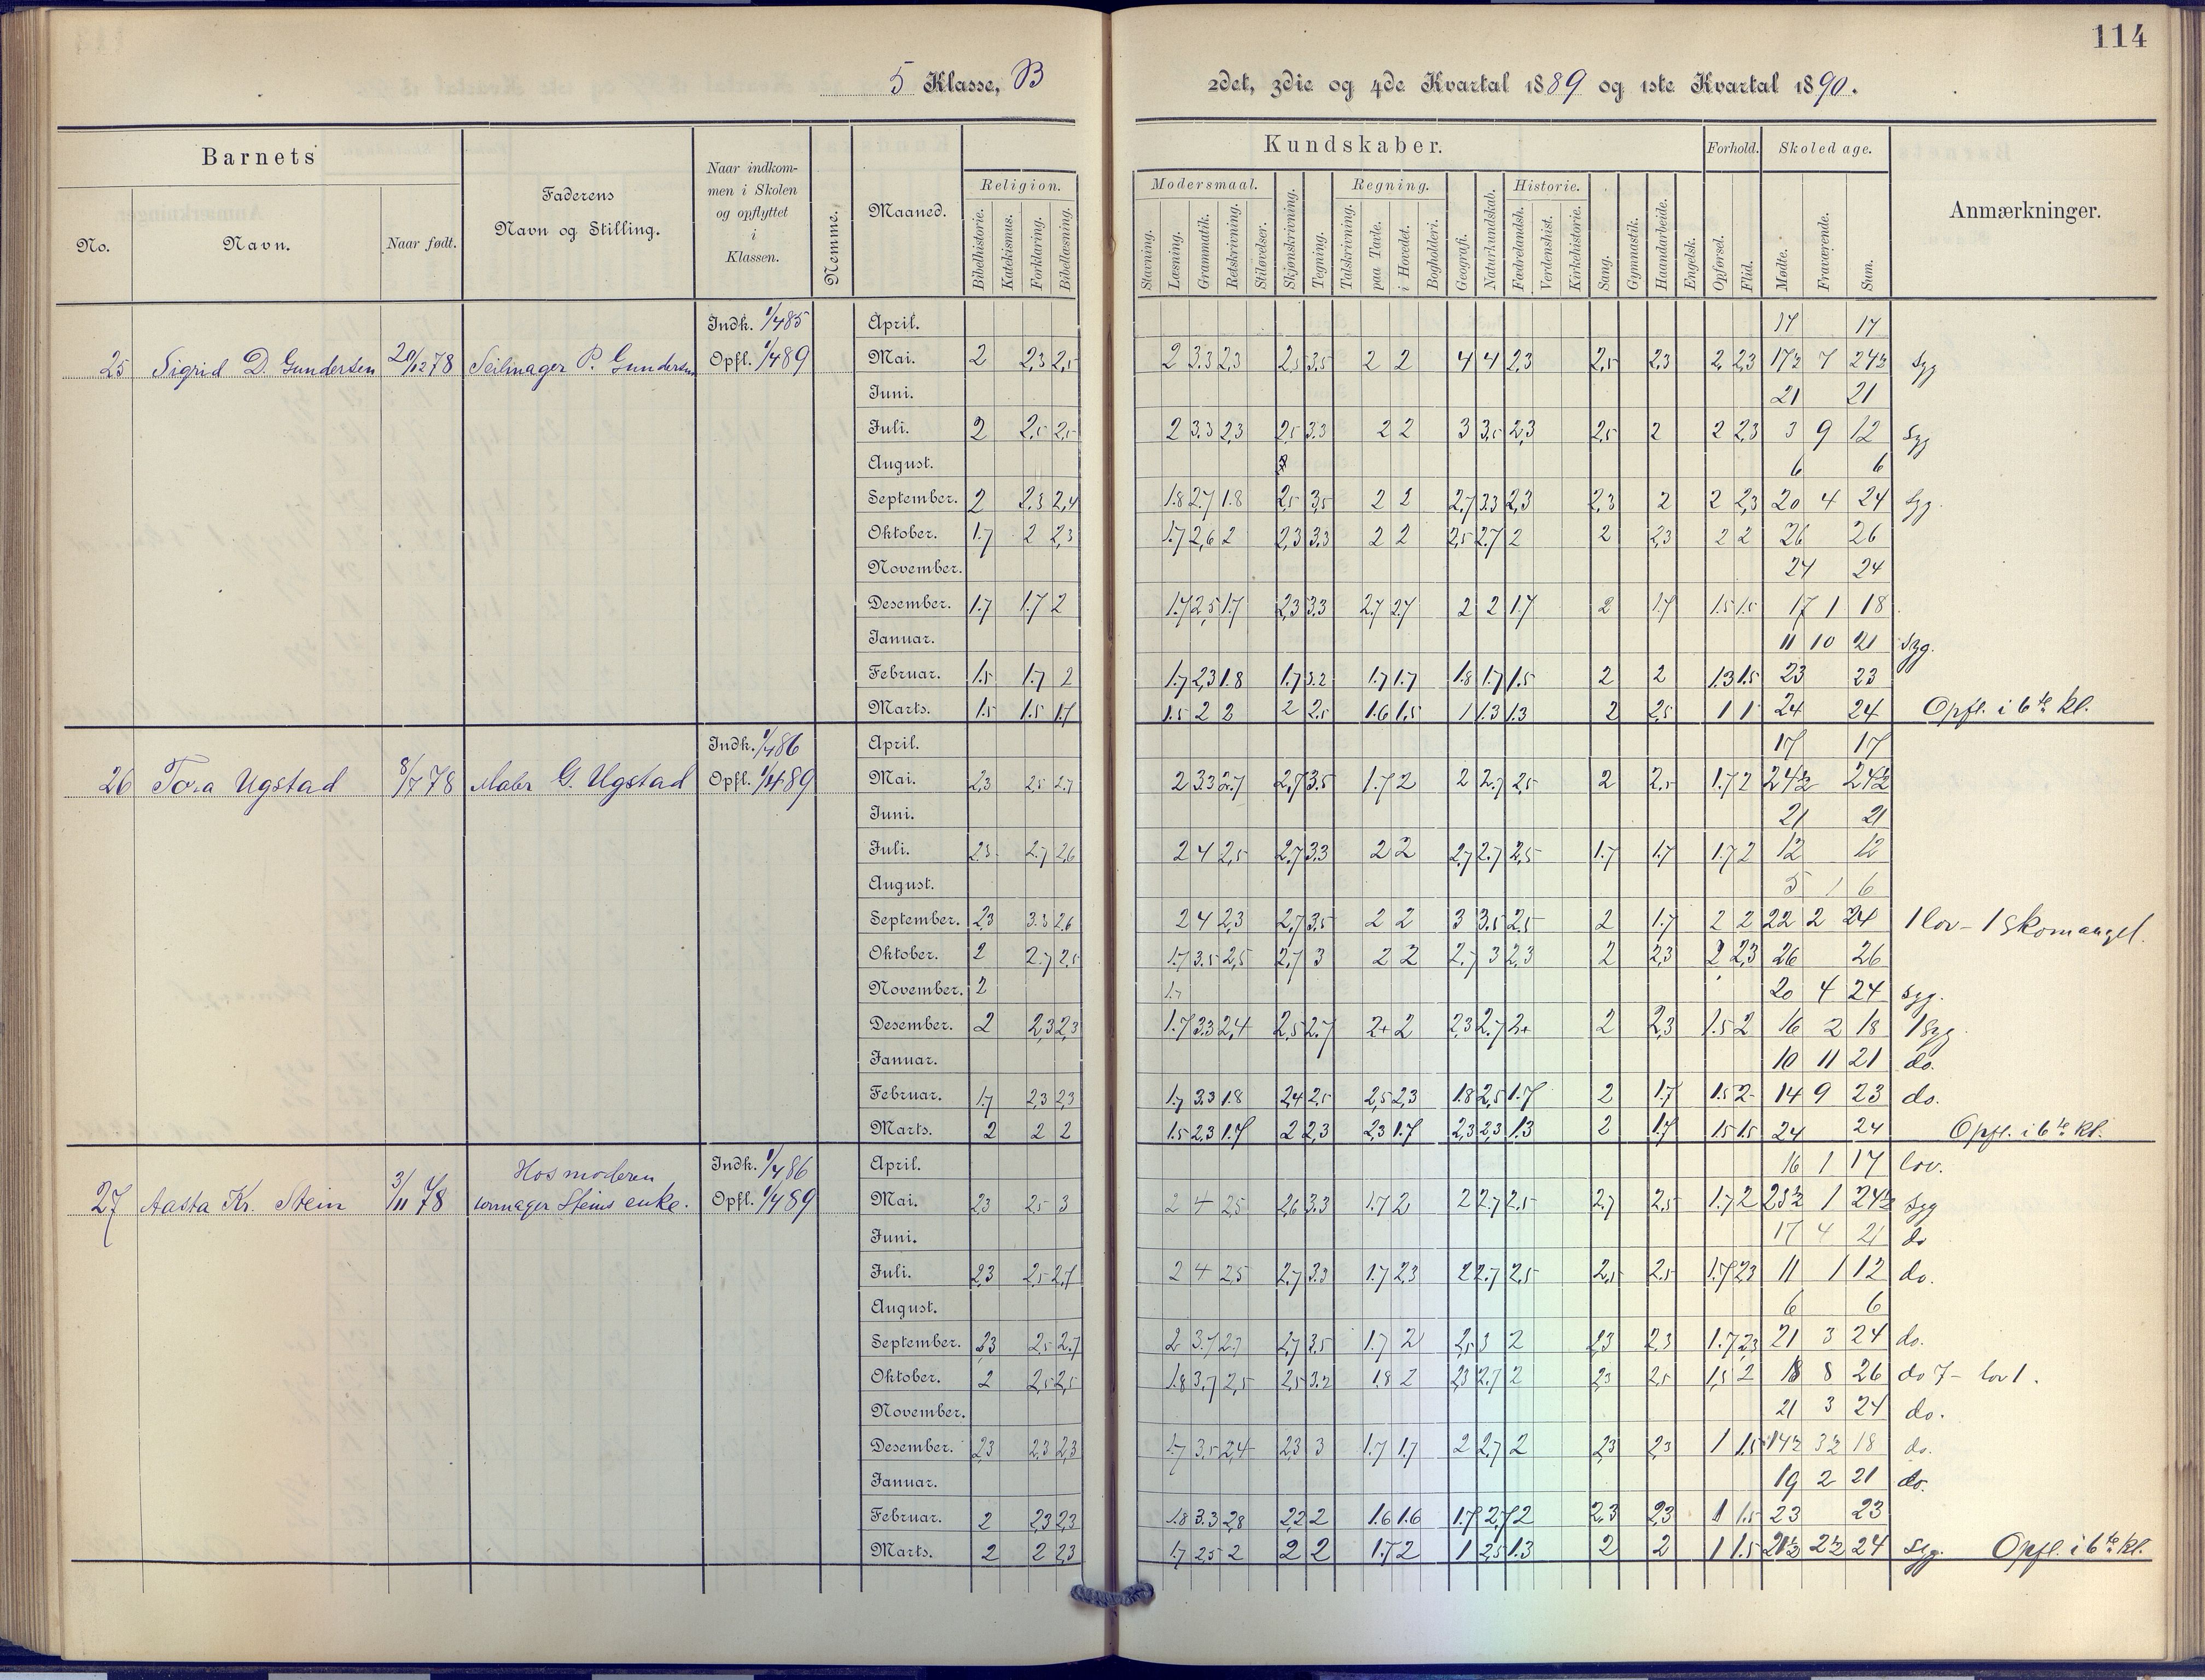 114
5 Klasse, B
2det, 3die og 4de Kvartal 1889 og 1ste Kvartal 1890.
Barnets
No. Navn. Naar født.
Faderens Navn og Stilling.
Naar indkom-
men i Skolen
og opflyttet
i
Klassen.
Nemme.
Maaned.
Kundskaber.
Religion.
Bibelhistorie. Katekismus. Forklaring. Bibellæsning.
Modersmaal.
Stavning. Læsning. Grammatik. Retskrivning. Stiløvelser.
Skjønskrivning. Tegning.
Regning.
Talskrivning. paa Tavle. i Hovedet. Bogholderi.
Geografi. Naturkundskab.
Historie.
Fædrelandsh. Verdenshist. Kirkehistorie.
Sang. Gymnastik. Haandarbeide. Engelsk.
Forhold.
Opførsel. Flid.
Skoledage.
Mødte. Fraværende. Sum.
Anmærkninger.
25 Sigrid D. Gundersen 20/12 78 Seilmager P. Gundersen
Indk. 1/4 85
Opfl. 1/4 89
April. 17 17
Mai. 2 2,3 2,5 2 3.3 2,3 2,5 3,5 2 2 4 4 2,3 2,5 2,3 2 2,3 17½ 7 24½ Syg
Juni. 21 21
Juli. 2 2,5 2,5 2 3.3 2,3 2,5 3.3 2 2 3 3,5 2,3 2,5 2 2 2,3 3 9 12 Syg
August. 6 6
September. 2 2.3 2,4 1.8 2.7 1.8 2,5 3,5 2 2 2,7 3.3 2,3 2,3 2 2 2,3 20 4 24 Syg.
Oktober. 1.7 2 2,3 1.7 2,6 2 2,3 3.3 2 2 2,5 2.7 2 2 2,3 2 2 26 26
November. 24 24
Desember. 1.7 1.7 2 1.7 2,5 1.7 2,3 3.3 2.7 2.7 2 2 1.7 2 1.7 1.5 1.5 17 1 18
Januar. 11 10 21 Syg.
Februar. 1.5 1.7 2 1.7 2,3 1.8 1.7 3.2 1.7 1.7 1.8 1.7 1.5 2 2 1.3 1.5 23 23
Marts. 1.5 1.5 1.7 1.5 2 2 2 2.5 1.6 1,5 1 1.3 1.3 2 2,5 1 1 24 24 Opfl. i 6te Kl.
26 Tora Ugstad 8/7 78 G. Ugstad
Indk. 1/4 86
Opfl. 1/4 89
April. 17 17
Mai. 2,3 2,5 2.7 2 3.3 2.7 2,7 3.5 1.7 2 2 2.7 2,5 2 2,5 1.7 2 24½ 24½
Juni. 21 21
Juli. 2,3 2.7 2,6 2 4 2,5 2,7 3.3 2 2 2,7 2.7 2,5 1.7 1.7 1.7 2 12 12
August. 5 1 6
September. 2,3 3.3 2,6 2 4 2,3 2,7 3,5 2 2 3 3.5 2,5 2 1.7 2 2 22 2 24 1 lov - 1 skomangel.
Oktober. 2 2.7 2,5 1.7 3.5 2,5 2,7 3 2 2 2.7 3 2,3 2 2,3 2 2,3 26 26
November. 2 1.7 20 4 24 syg.
Desember. 2 2,3 2,3 1.7 3.3 2,4 2,5 2.7 2+ 2 2,3 2.7 2+ 2 2,3 1.5 2 16 2 18 1 syg.
Januar. 10 11 21 do.
Februar. 1.7 2,3 2,3 1.7 3.3 1.8 2,4 2.5 2,5 2,3 1.8 2,5 1.7 2 1.7 1.5 2 14 9 23 do.
Marts. 2 2 2 1.5 2,3 1.7 2 2,3 2,3 1.7 2,3 2,3 1.3 2 1.7 1.5 1.5 24 24 Opfl. i 6te Kl.
27 Aasta Kr. Stein 3/11 78 Hos moderen
Steins enke.
Indk. 1/4 86
Opfl. 1/4 89
April. 16 1 17 lov.
Mai. 2,3 2,5 3 2 4 2,5 2,6 3.3 1.7 2 2 2.7 2,5 2,7 2,5 1.7 2 23½ 1 24½ Syg
Juni. 17 4 21 do
Juli. 2,3 2,5 2,7 2 4 2,5 2,7 3.3 1.7 2,3 2 2.7 2,5 2,5 2.5 1.7 2,3 11 1 12 do.
August. 6 6
September. 2,3 2,5 2.7 2 3.7 2,7 2,7 3.5 1.7 2 2,5 3 2 2,3 2,3 1.7 2,3 21 3 24 do.
Oktober. 2 2,5 2,5 1.8 3.7 2,5 2,5 3.2 1.8 2 2,3 2.7 2 2,3 2,5 1,5 2 18 8 26 do 7 - lov 1.
November. 21 3 24 do.
Desember. 2,3 2,3 2,3 1.7 3.5 2,4 2,3 3 1.7 1.7 2 2.7 2 2,3 2,3 1 1.5 14½ 3½ 18 do.
Januar. 19 2 21 do.
Februar. 2 2,3 2,3 1.8 3.3 2,8 2,2 2 1.6 1.6 1.7 2,7 2 2,3 2,3 1 1.5 23 23
Marts. 2 2 2,3 1.7 2,5 2 2 2 1.7 2 1 2,5 1.3 2 2 1 1.5 21½ 2½ 24 Syg. Opfl. i 6te Kl.